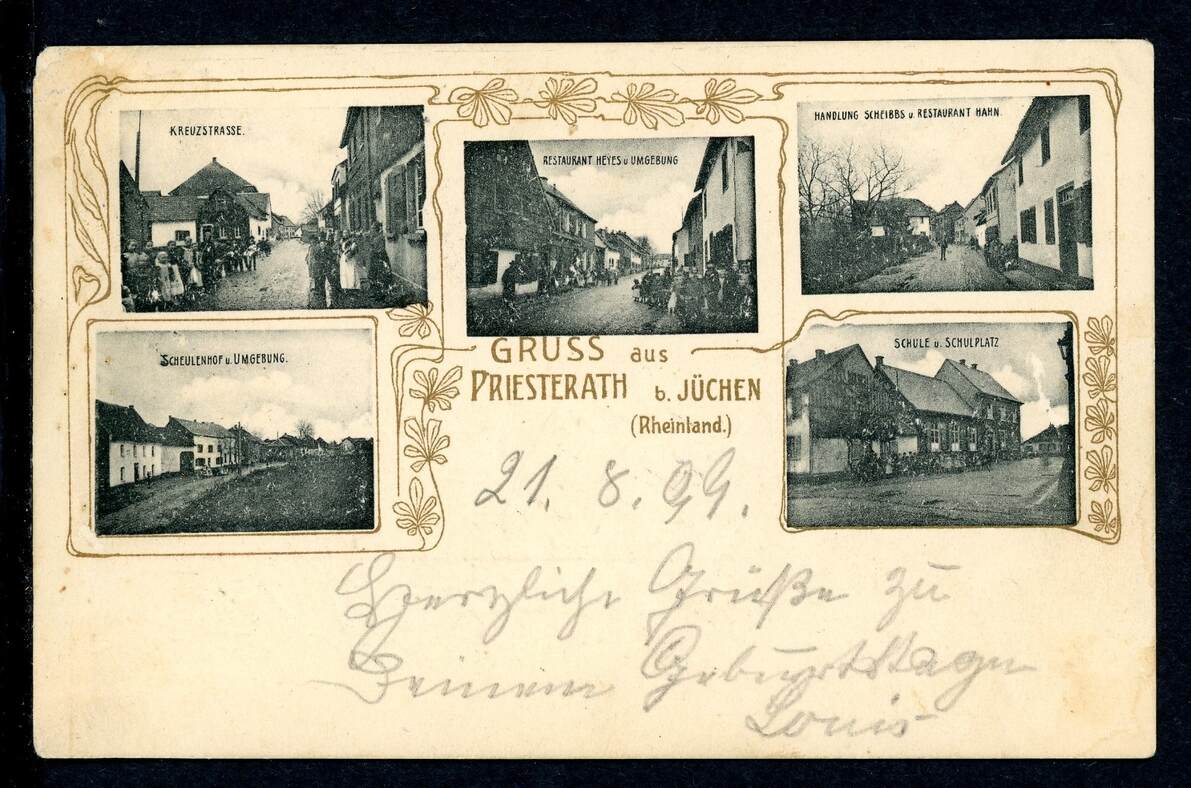 KREUZSTRASSE.
RESTAURANT HEYES u UMGEBUNG
HANDLUNG SCHEIBBS u. RESTAURANT HAHN.
SCHEULENHOF u. UMGEBUNG.
SCHULE u. SCHULPLATZ
GRUSS aus
PRIESTERATH b. JÜCHEN
(Rheinland.)
21. 8. 99.
Herzliche Grüße zu
Deinem Geburtstage
Louis